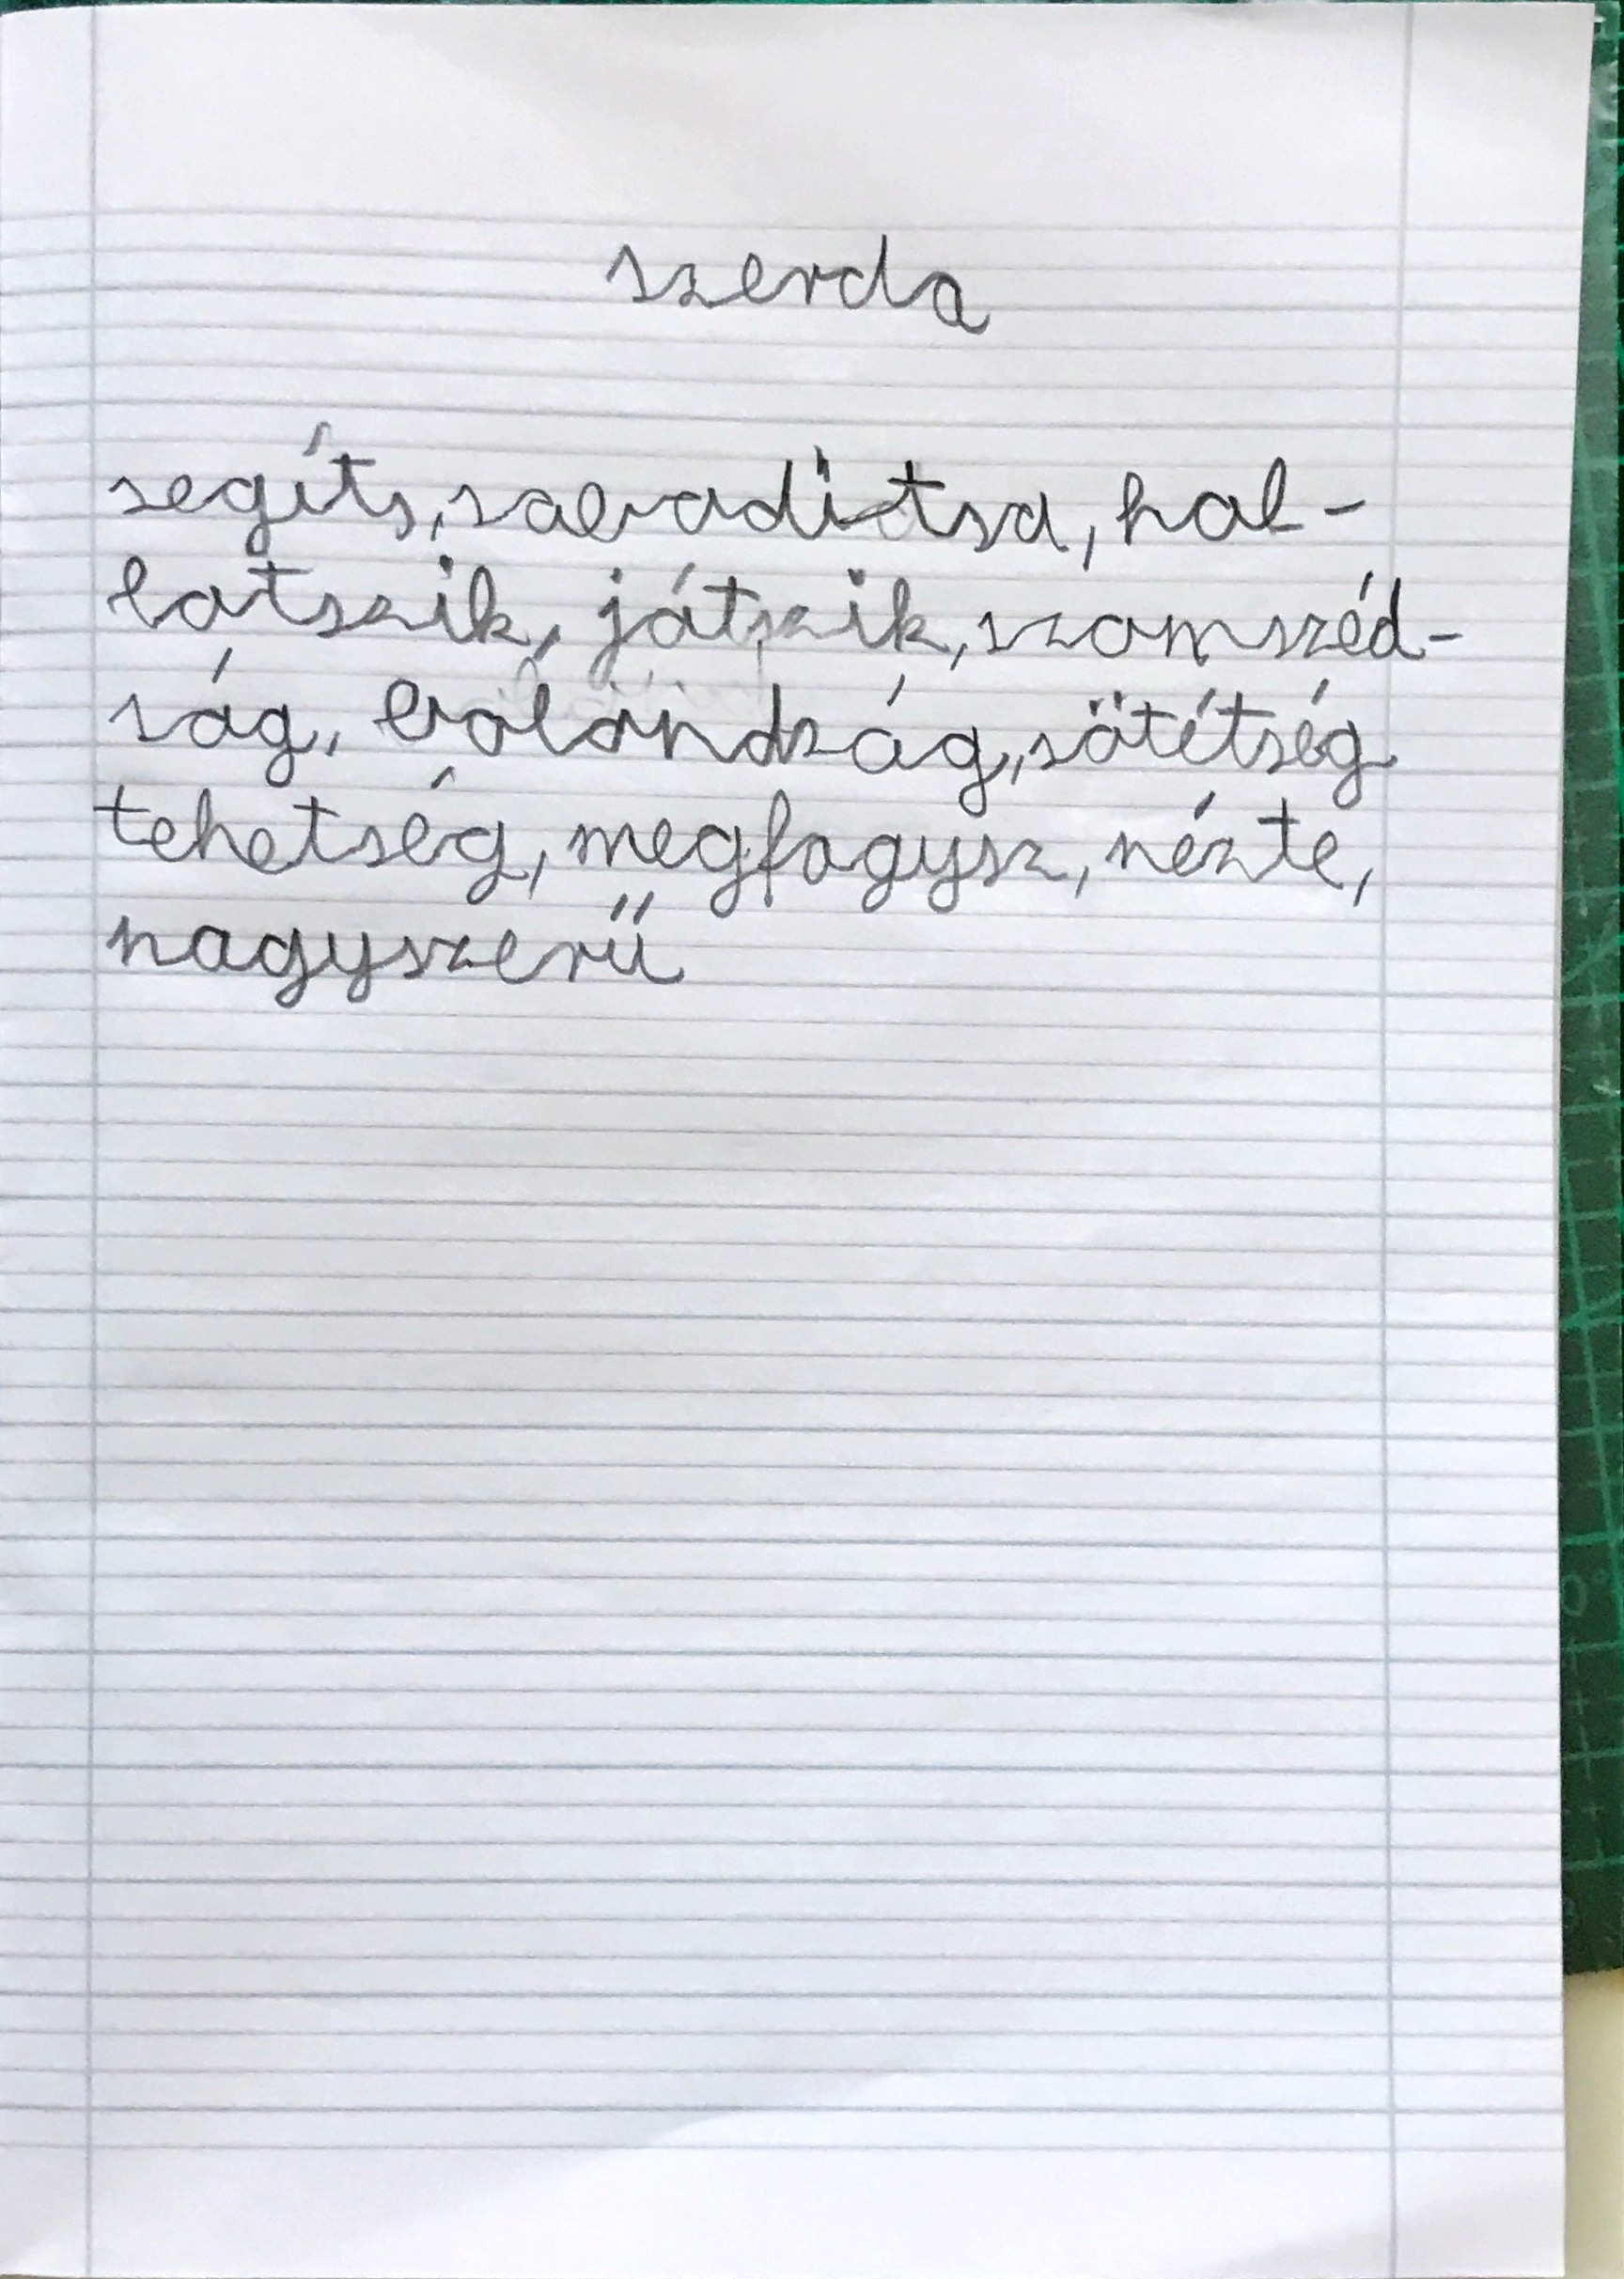 szerda
segíts, szabadítsa, hal-
latszik, játszik, szomszéd-
ság, bolondság, sötétség
tehetség, megfagysz, nézte,
nagyszerű